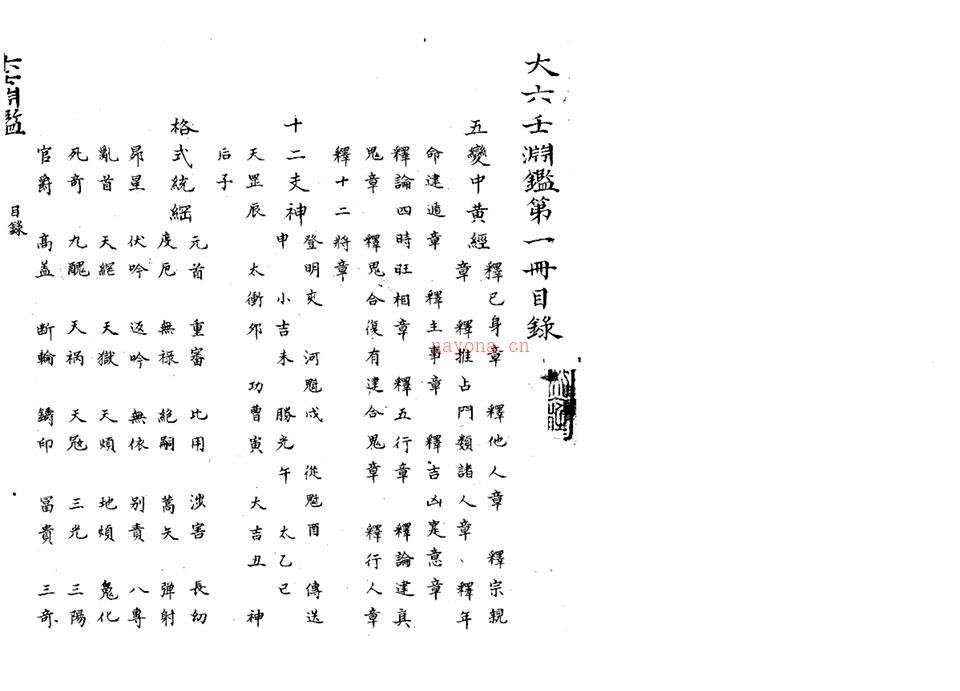 大六壬淵鑑第一冊目錄
五變中黃經
釋己身章 釋他人章 釋宗親
章 釋推占門類諸人章、釋年
命建適章 釋主事章 釋吉凶寔意章
釋論四時旺相章 釋五行章 釋論建真
鬼章 釋鬼合復有建合鬼章 釋行人章
釋十二將章
十二支神
登明亥 河魁戌 從魁酉 傳送
申 小吉未 勝光午 太乙巳
天罡辰 太衝夘 功曹寅 大吉丑 神
后子
格式統綱
元首 重審 比用 涉害 長幼
度厄 無祿 絕嗣 蒿矢 弹射
昂星 伏吟 返吟 無依 别責 八專
亂首 天網 天獄 天煩 地煩 鬼化
死奇 九醜 天禍 天寇 三光 三陽
官爵 髙盖 断輪 鑄印 冨貴 三奇
目錄
nayona.cn